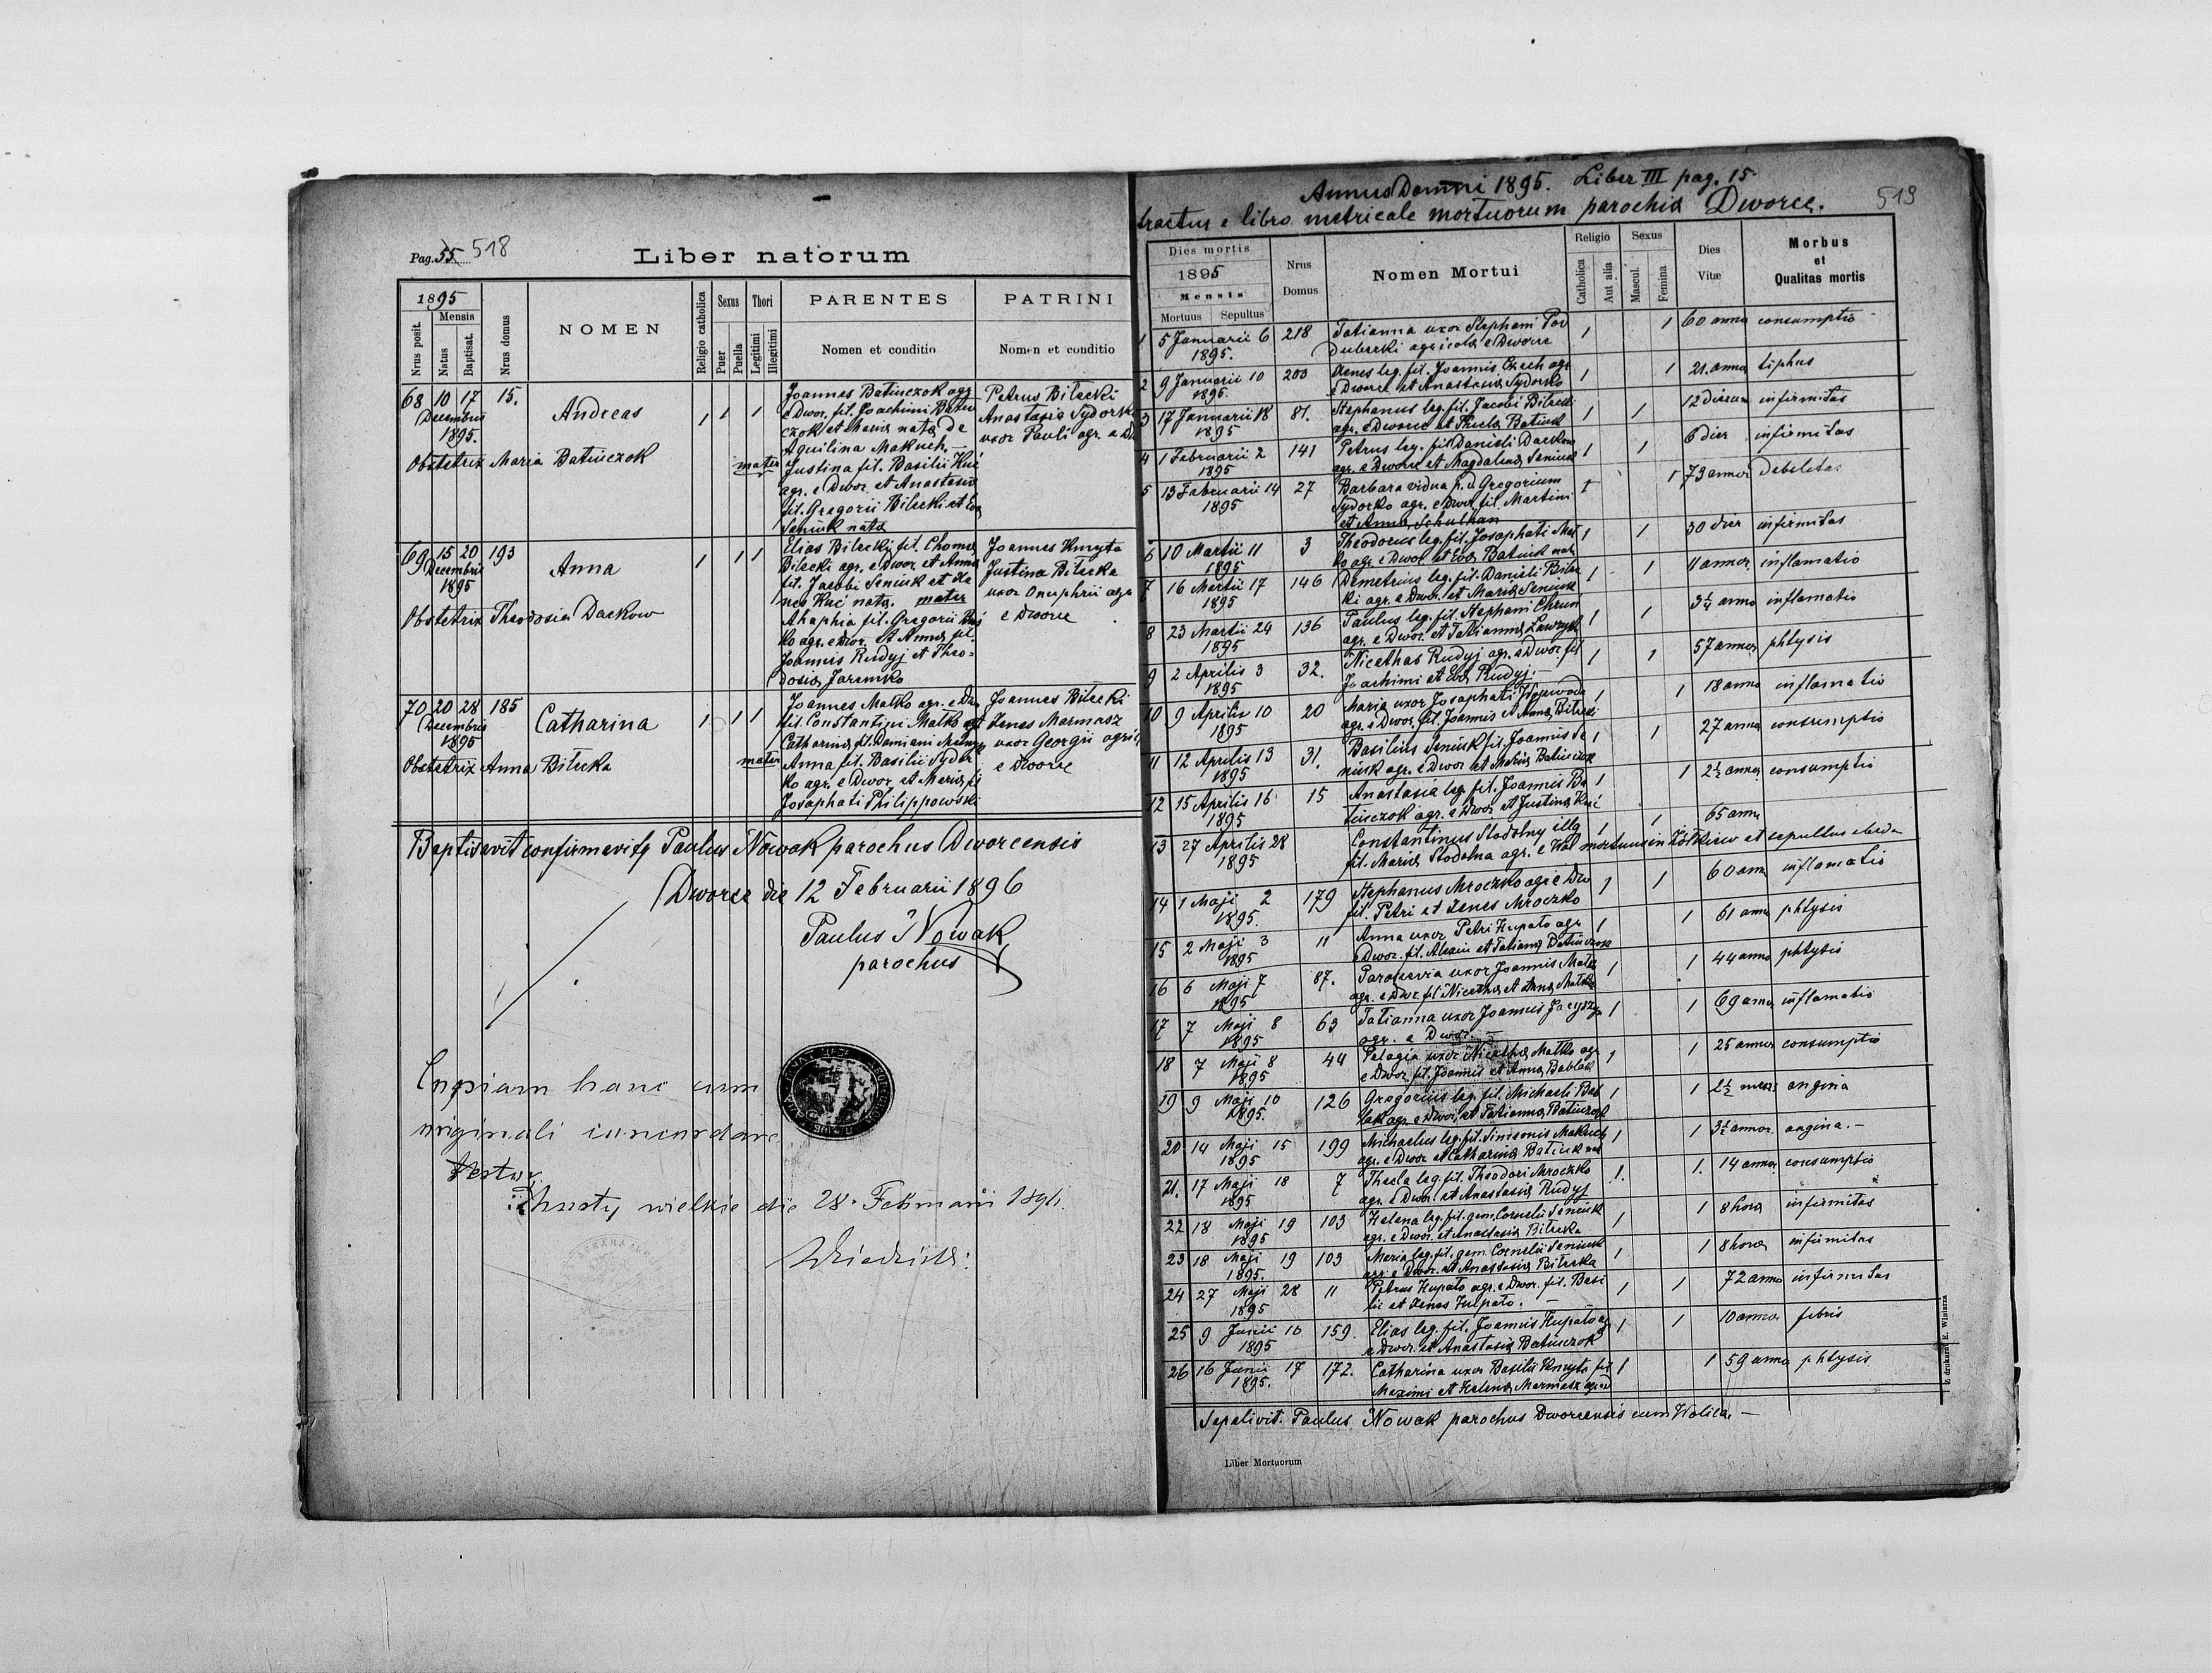 Pag. 55 518
Liber natorum
1895
Mensis
Nrus posit.
Natus
Baptisat.
Nrus domus
NOMEN
Religio catholica
Sexus
Puer
Puella
Thori
Legitimi
Illegitimi
PARENTES
Nomen et conditio
PATRINI
Nomen et conditio
68 10 17 15.
Decembris
1895.
Andreas
1 1 1
Joannes Batiuczok agr
e Dwor. fil. Joachimi Batiu
czok et Maria nata de
Aquilina Makuch.
mater Justina fil. Basilii Kuć
agr. e Dwor. et Anastasia
fil. Gregorii Bilecki et Eva
Seniuk nata
Petrus Bilecki
Anastasia Sydorko
uxor Pauli agr. e Dw
Obstetrix Maria Batiuczok
69 15 20 193
Decembris
1895
Anna
1 1 1
Elias Bilecki fil. Choma
Bilecki agr. e Dwor. et Anna
fil. Jacobi Seniuk et Xe
nes Kuć nata. mater
Ahaphia fil. Gregorii
ko agr. e Dwor. et Anna fil.
Joannis Rudyj et Theo=
dosia Jaremko
Joannes Kmyta
Justina Bilecka
uxor Onuphrii agr
e Dworce
Obstetrix Theodosia Dackow
70 20 28 185
Decembris
1895
Catharina
1 1 1
Joannes Matko agr. e Dw
fil. Constantini Matko et
Catharina fil. Damiani
mater Anna fil. Basilii Sydor
ko agr. e Dwor. et Maria fil
Josaphati Philippowski
Joannes Bilecki
Xenes Marmasz
uxor Georgii agric
e Dworce
Obstetrix Anna Bilecka
Baptisavit confirmavitq Paulus Nowak parochus Dworcensis
Dworce die 12 Februarii 1896
Paulus Nowak
parochus
Copiam hanc cum
originali concordare
testor.
Chusty wielkie die 28. Februarii 1896.
Annus Domini 1895. Liber III pag. 15.
519
tractus e libro metricale mortuorum parochia Dworce.
Dies mortis
1895
Mensis
Mortuus Sepultus
Nrus
Domus
Nomen Mortui
Religio
Catholica
Aut alia
Sexus
Mascul.
Femina
Dies
Vitæ
Morbus
et
Qualitas mortis
1 5 Januarii 6 218 Tatianna uxor Stephani Pod 1 1 60 anno consumptio
1895. Dubecki agricola e Dworce
2 9 Januarii 10 203 Xenes leg. fil. Joannis Czech agr 1 1 21 anno tiphus
1895. e Dworce et Anastasia Sydorko
3 17 Januarii 18 81. Stephanus leg. fil. Jacobi Bilecki 1 1 12 dierum infirmitas
1895 agr. e Dworce et Thecla Batiuk
4 1 Februarii 2 141 Petrus leg. fil Danieli Dackow 1 1 6 dier infirmitas
1895 agr. e Dworce et Magdalena Seniuk
5 13 Februarii 14 27 Barbara vidua p. d. Gregorium 1 1 73 annor debelitas
1895 Sydorko agr. e Dwor. fil. Martini
et Anna Schulhan
6 10 Martii 11 3 Theodorus leg. fil. Josaphati Mat 1 1 30 dier infirmitas
1895 ko agr. e Dwor. et Eva Batiuk nat
7 16 Martii 17 146 Demetrius leg. fil. Danieli Bilec 1 1 11 annor inflamatio
1895 ki agr. e Dwor. et Maria Seniuk
8 23 Martii 24 136 Paulus leg. fil. Stephani Chrun 1 1 3¼ anno inflamatio
1895 agr. e Dwor. et Tatianna
9 2 Aprilis 3 32. Nicethas Rudyj agr. e Dwor. fil 1 1 57 annor phtysis
1895 Joachimi et Eva Rudyj.
10 9 Aprilis 10 20 Maria uxor Josaphati 1 1 18 anno inflamatio
1895 agr. e Dwor. fil. Joannis et Anna Bilecki
11 12 Aprilis 13 31. Basilius Seniuk fil. Joannis Se 1 1 27 anno consumptio
1895 niuk agr. e Dwor. et Maria Batiuczok
12 15 Aprilis 16 15 Anastasia leg. fil. Joannis Ba 1 1 2½ anno consumptio
1895 tiuczok agr. e Dwor. et Justina Kuć
13 27 Aprilis 28 Constantinus Stodolny illg 1 1 65 anno
1895 fil. Maria Stodolna agr. e Wol mortuus in Żółkiew et sepultus
14 1 Maji 2 179 Stephanus Mroczko agr e Dw 1 1 60 anno inflamatio
1895. fil. Petri et Xenes Mroczko
15 2 Maji 3 11 Anna uxor Petri Hupato agr 1 1 61 anno phtysis
1895 e Dwor. fil. Alexii et Tatianna Batiuczok
16 6 Maji 7 87. Paraskevia uxor Joannis Matko 1 1 44 anno phtysis
1895 agr. e Dwor fil Nicetha et Anna Matko
17 7 Maji 8 63 Tatianna uxor Joannis 1 1 69 anno inflamatio
1895 agr. e Dwor.
18 7 Maji 8 44 Pelagia uxor Nicetha Matko agr. 1 1 25 annor consumptio
1895 e Dwor. fil. Joannis et Anna Bablak
19 9 Maji 10 126 Gregorius leg. fil. Michaeli Bab 1 1 2½ mens angina
1895. lak agr. e Dwor. et Tatianna Batiuczok
20 14 Maji 15 199 Michaelus leg. fil. Simeonis Makuch 1 1 3½ annor. angina.
1895 agr. e Dwor et Catharina Batiuk nat
21. 17 Maji 18 7 Thecla leg. fil. Theodori Mroczko 1. 1. 14 anno consumptio
1895 agr. e Dwor. et Anastasia Rudyj
22 18 Maji 19 103 Helena leg. fil. gem. Cornelii Seniuk 1 1 8 hora infirmitas
1895 agr. e Dwor. et Anastasia Bilecka
23 18 Maji 19 103 Maria leg. fil. gem. Cornelii Seniuk 1 1 8 hora infirmitas
1895. agr. e Dwor. et Anastasia Bilecka
24 27 Maji 28 11 Petrus Hupato agr. e Dwor. fil. Basi 1 1 72 anno infirmitas
1895 lii et Xenes Hupato.
25 9 Junii 10 159. Elias leg. fil. Joannis Hupato agr 1 1 10 annor febris
1895 e Dwor. et Anastasia Batiuczok
26 16 Junii 17 172. Catharina uxor Basilii Kmyta fil 1 1 59 anno phtysis
1895. Maximi et Helena Marmasz agr e D
Sepelivit. Paulus Nowak parochus Dworcensis cum Wolica.
Liber Mortuorum
Z drukarni E. Winiarza